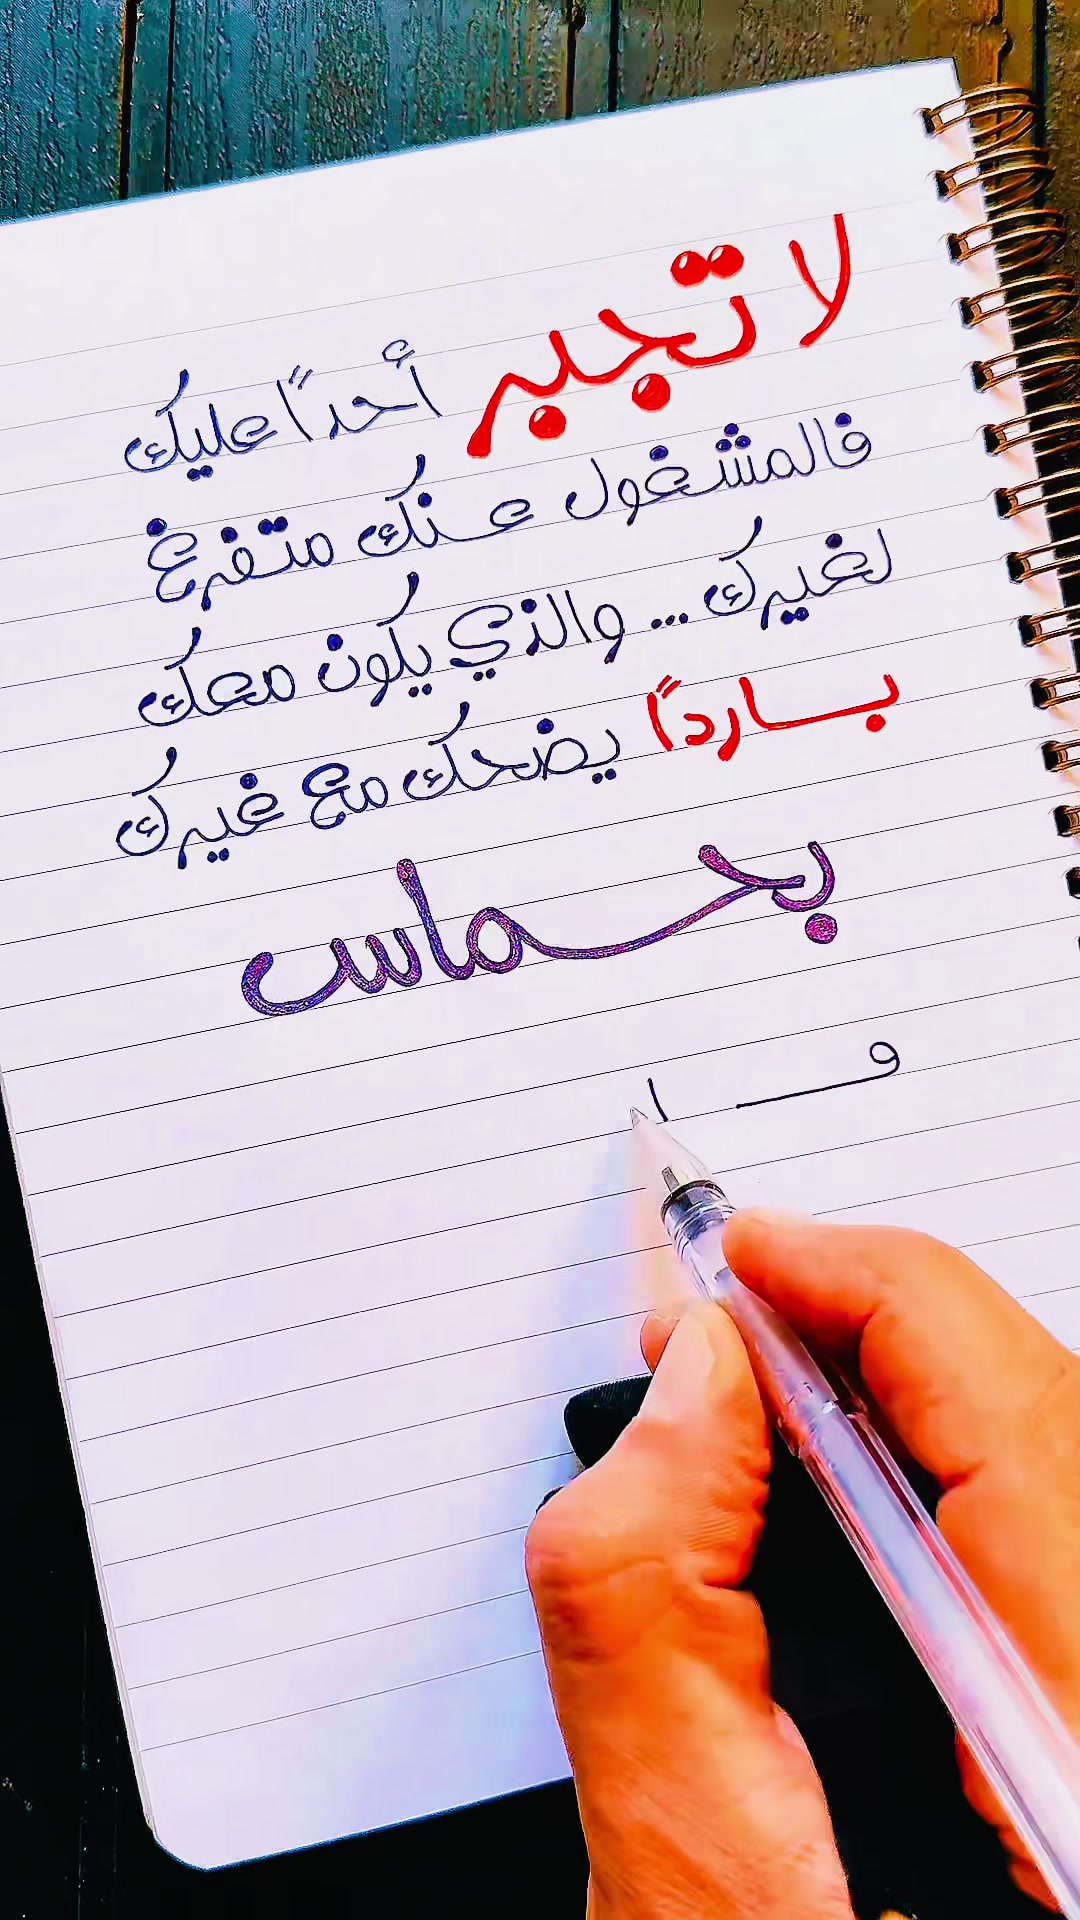 لا تجبر أحداً عليك
فالمشغول عنك متفرغ
لغيرك ... والذي يكون معك
بارداً يضحك مع غيرك
بحماس